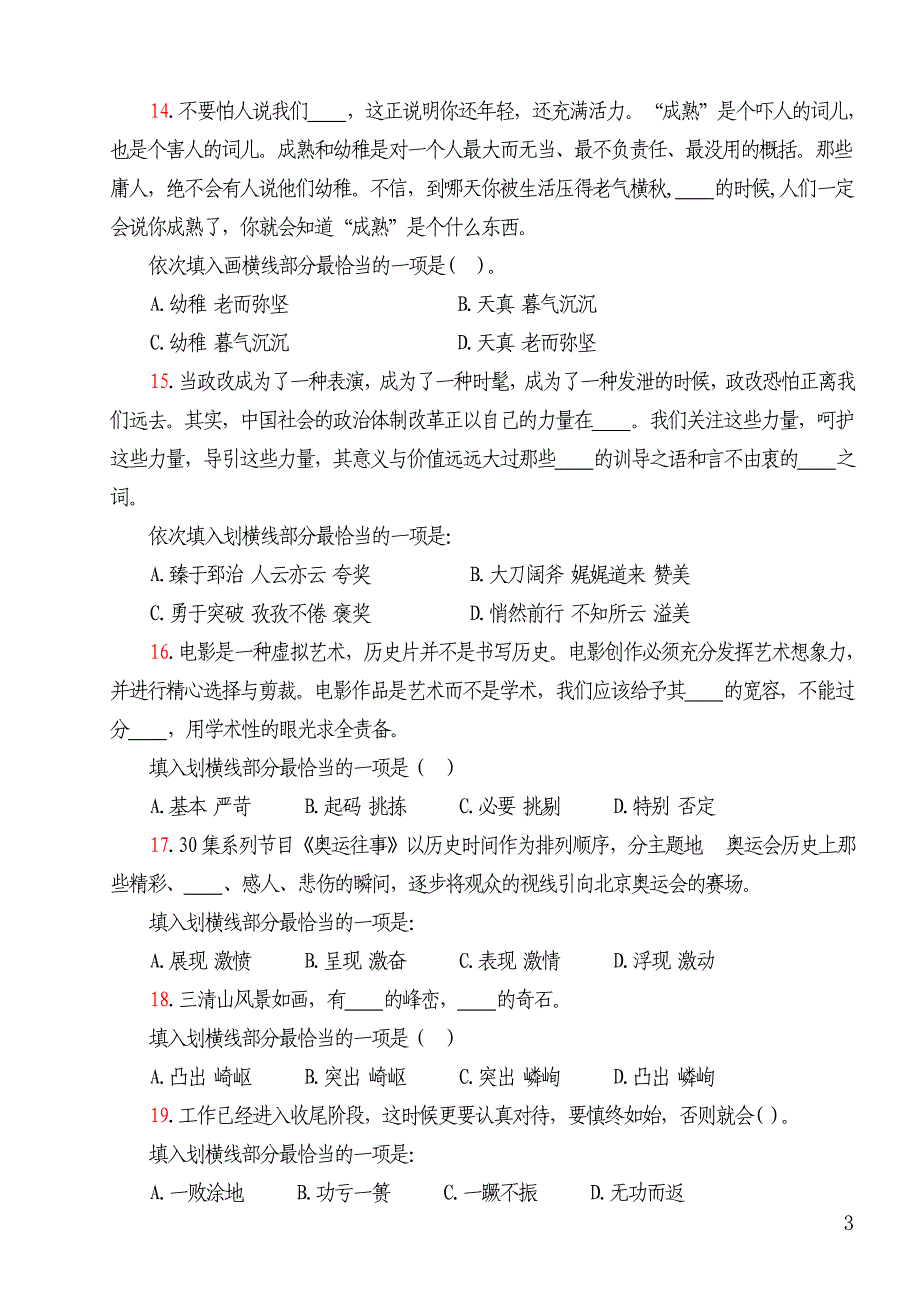 14.不要怕人说我们____，这正说明你还年轻，还充满活力。“成熟”是个吓人的词儿，
也是个害人的词儿。成熟和幼稚是对一个人最大而无当、最不负责任、最没用的概括。那些
庸人，绝不会有人说他们幼稚。不信，到哪天你被生活压得老气横秋,____的时候,人们一定
会说你成熟了，你就会知道“成熟”是个什么东西。
依次填入画横线部分最恰当的一项是( )。
A.幼稚 老而弥坚 B.天真 暮气沉沉
C.幼稚 暮气沉沉 D.天真 老而弥坚
15.当政改成为了一种表演，成为了一种时髦，成为了一种发泄的时候，政改恐怕正离我
们远去。其实，中国社会的政治体制改革正以自己的力量在____。我们关注这些力量，呵护
这些力量，导引这些力量，其意义与价值远远大过那些____的训导之语和言不由衷的____之
词。
依次填入划横线部分最恰当的一项是:
A.臻于郅治 人云亦云 夸奖 B.大刀阔斧 娓娓道来 赞美
C.勇于突破 孜孜不倦 褒奖 D.悄然前行 不知所云 溢美
16.电影是一种虚拟艺术，历史片并不是书写历史。电影创作必须充分发挥艺术想象力，
并进行精心选择与剪裁。电影作品是艺术而不是学术，我们应该给予其____的宽容，不能过
分____，用学术性的眼光求全责备。
填入划横线部分最恰当的一项是( )
A.基本 严苛 B.起码 挑拣 C.必要 挑剔 D.特别 否定
17.30集系列节目《奥运往事》以历史时间作为排列顺序，分主题地 奥运会历史上那
些精彩、____、感人、悲伤的瞬间，逐步将观众的视线引向北京奥运会的赛场。
填入划横线部分最恰当的一项是:
A.展现 激愤 B.呈现 激奋 C.表现 激情 D.浮现 激动
18.三清山风景如画，有____的峰峦，____的奇石。
填入划横线部分最恰当的一项是( )
A.凸出 崎岖 B.突出 崎岖 C.突出 嶙峋 D.凸出 嶙峋
19.工作已经进入收尾阶段，这时候更要认真对待，要慎终如始，否则就会()。
填入划横线部分最恰当的一项是:
A.一败涂地 B.功亏一篑 C.一蹶不振 D.无功而返
3